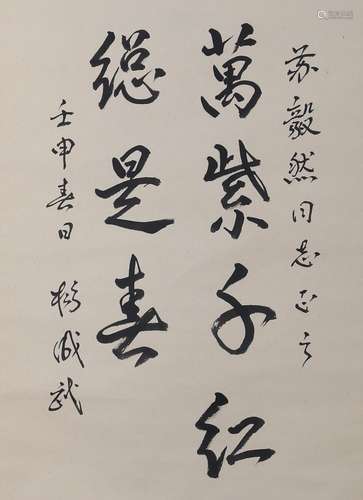 苏毅然同志正之
萬紫千红
總是春
壬申春日 楊成武